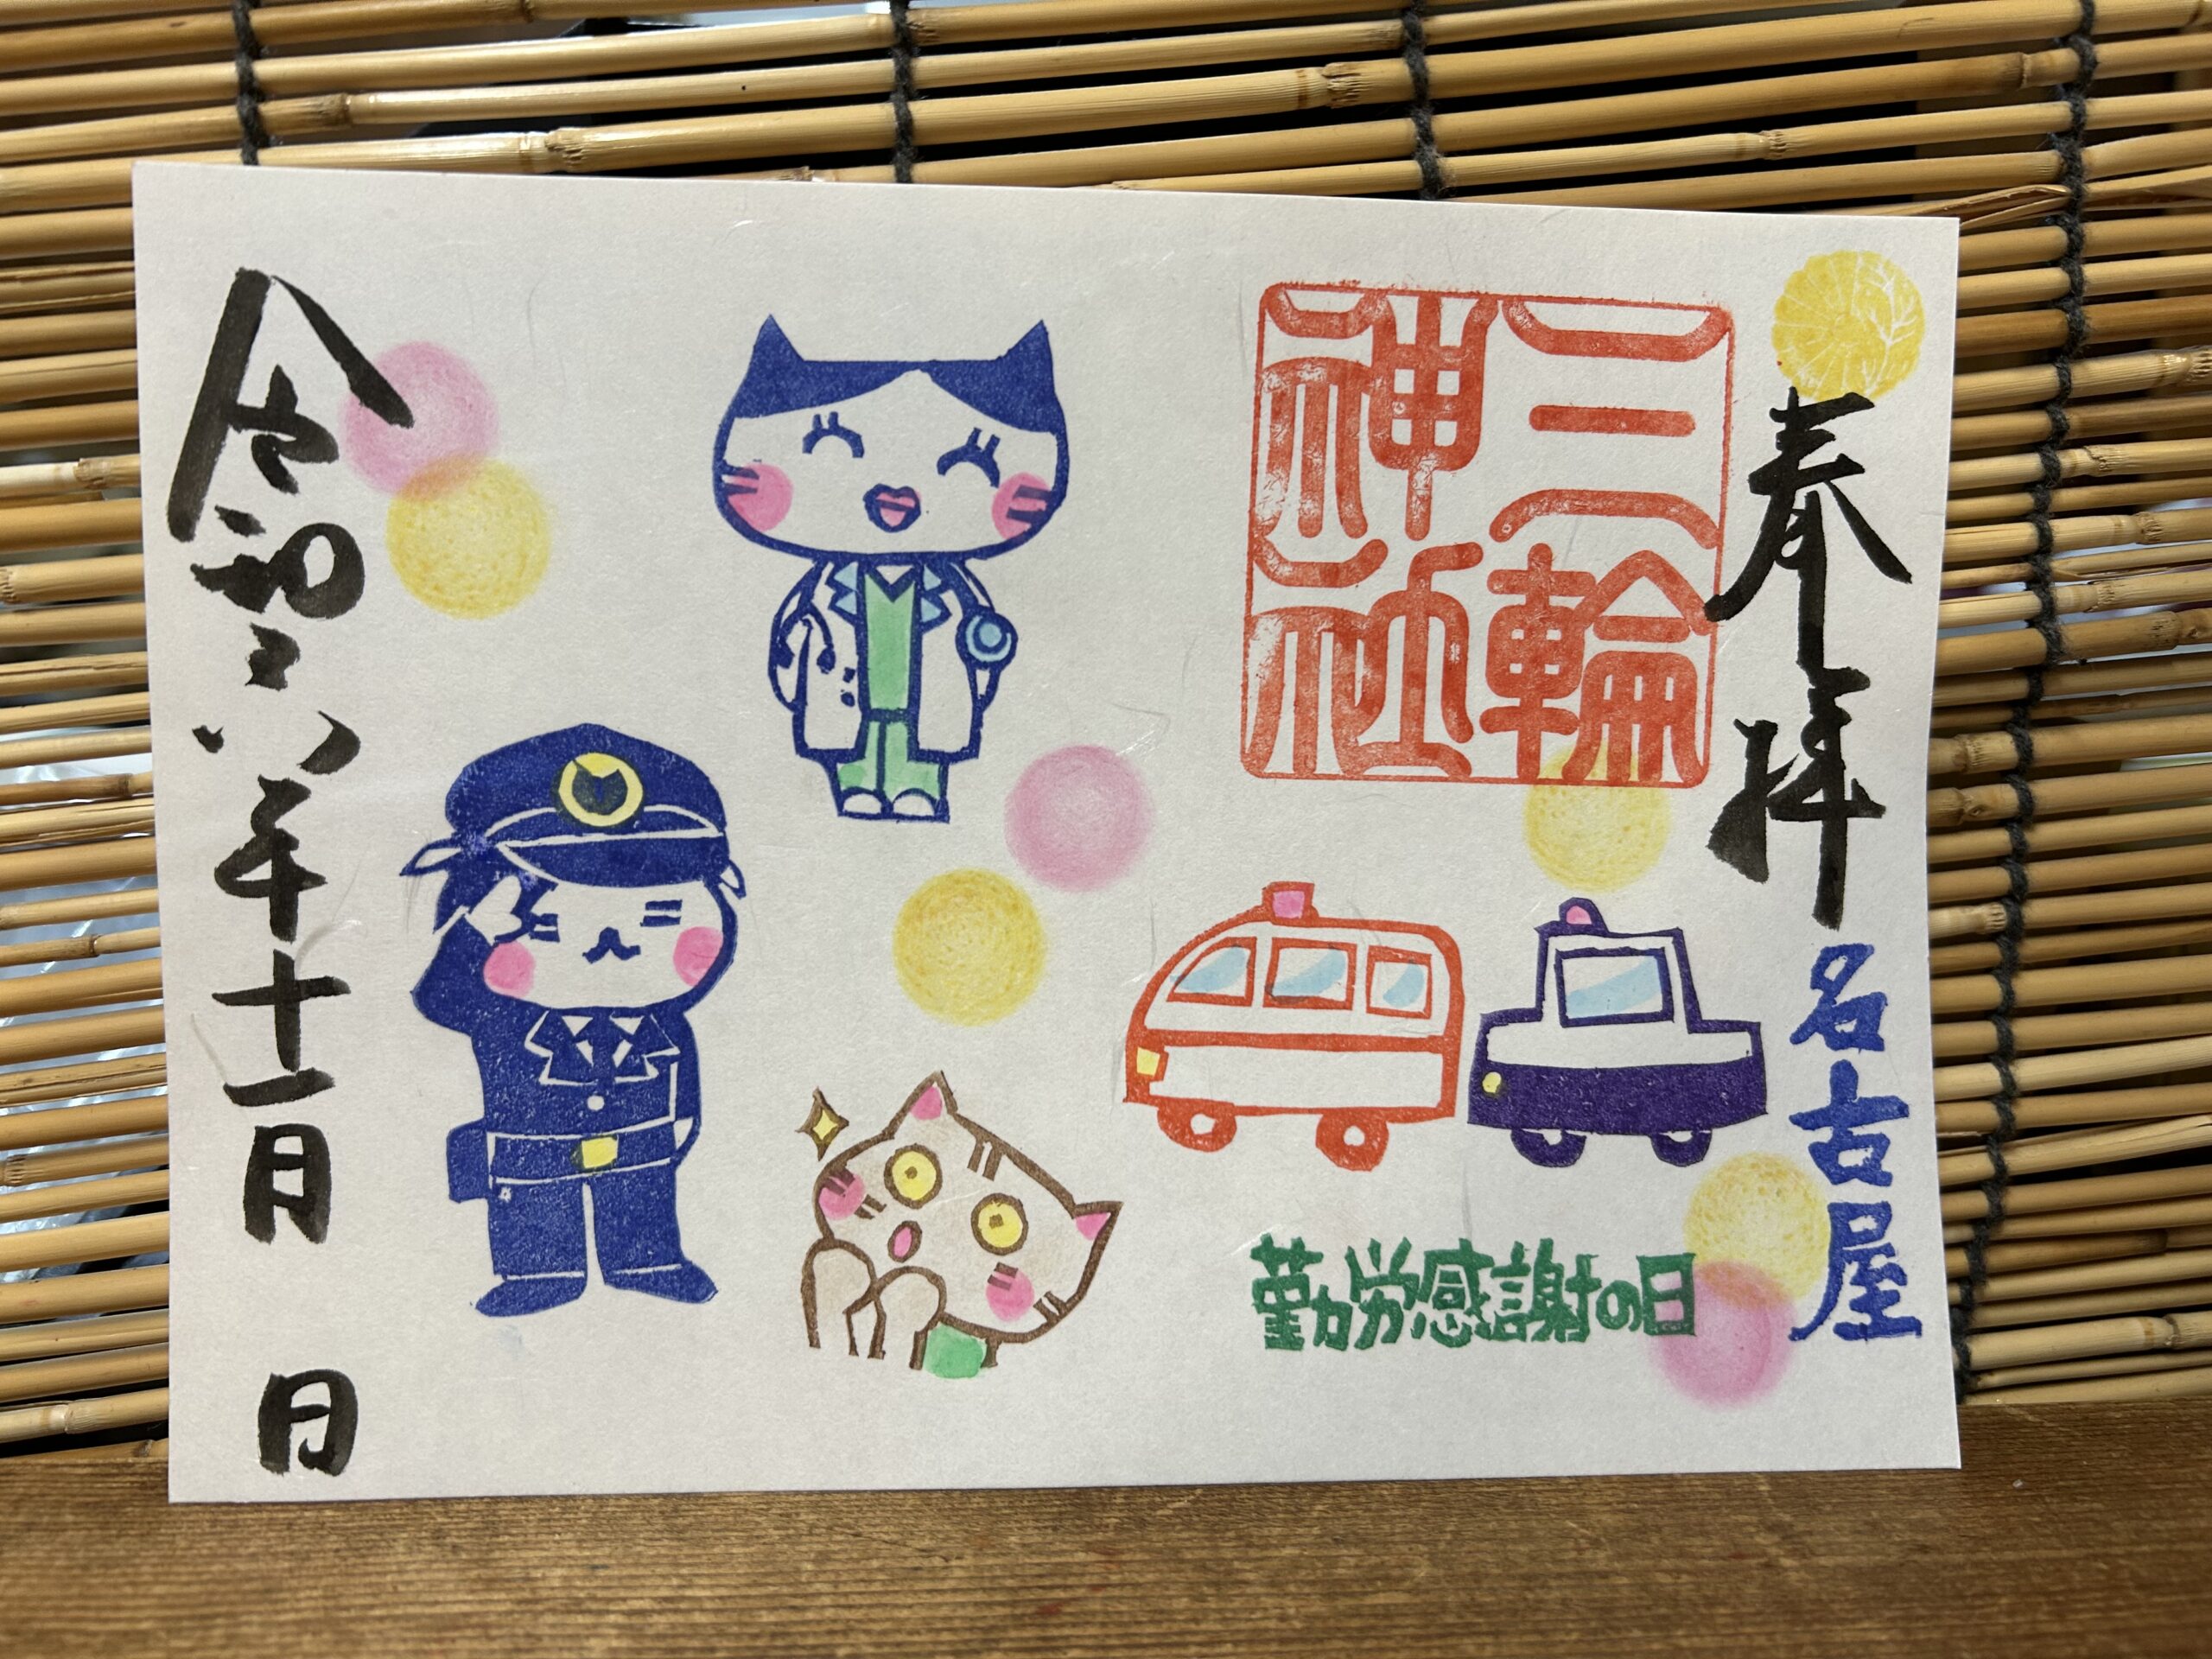 奉拝
名古屋
三輪
神社
勤労感謝の日
令和六年十一月 日